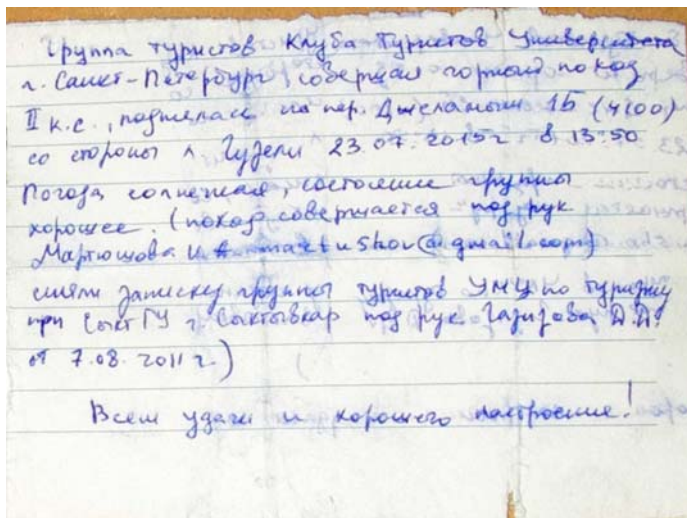 Группа туристов Клуба Туристов Университета
г. Санкт-Петербург, совершая горный поход
II к.с., поднялась на пер. Джеламыш 1Б (4100)
со стороны л Гузели 23.07.2015г в 13:50
Погода солнечная, состояние группы
хорошее. (поход совершается под рук
Мартюшова И.А. martushov@gmail.com)
сняли записку группы туристов УМЦ по туризму
при СыктГУ г. Сыктывкар под рук. Гагирова Д.А.
от 7.08.2011г.)
Всем удачи и хорошего настроение!